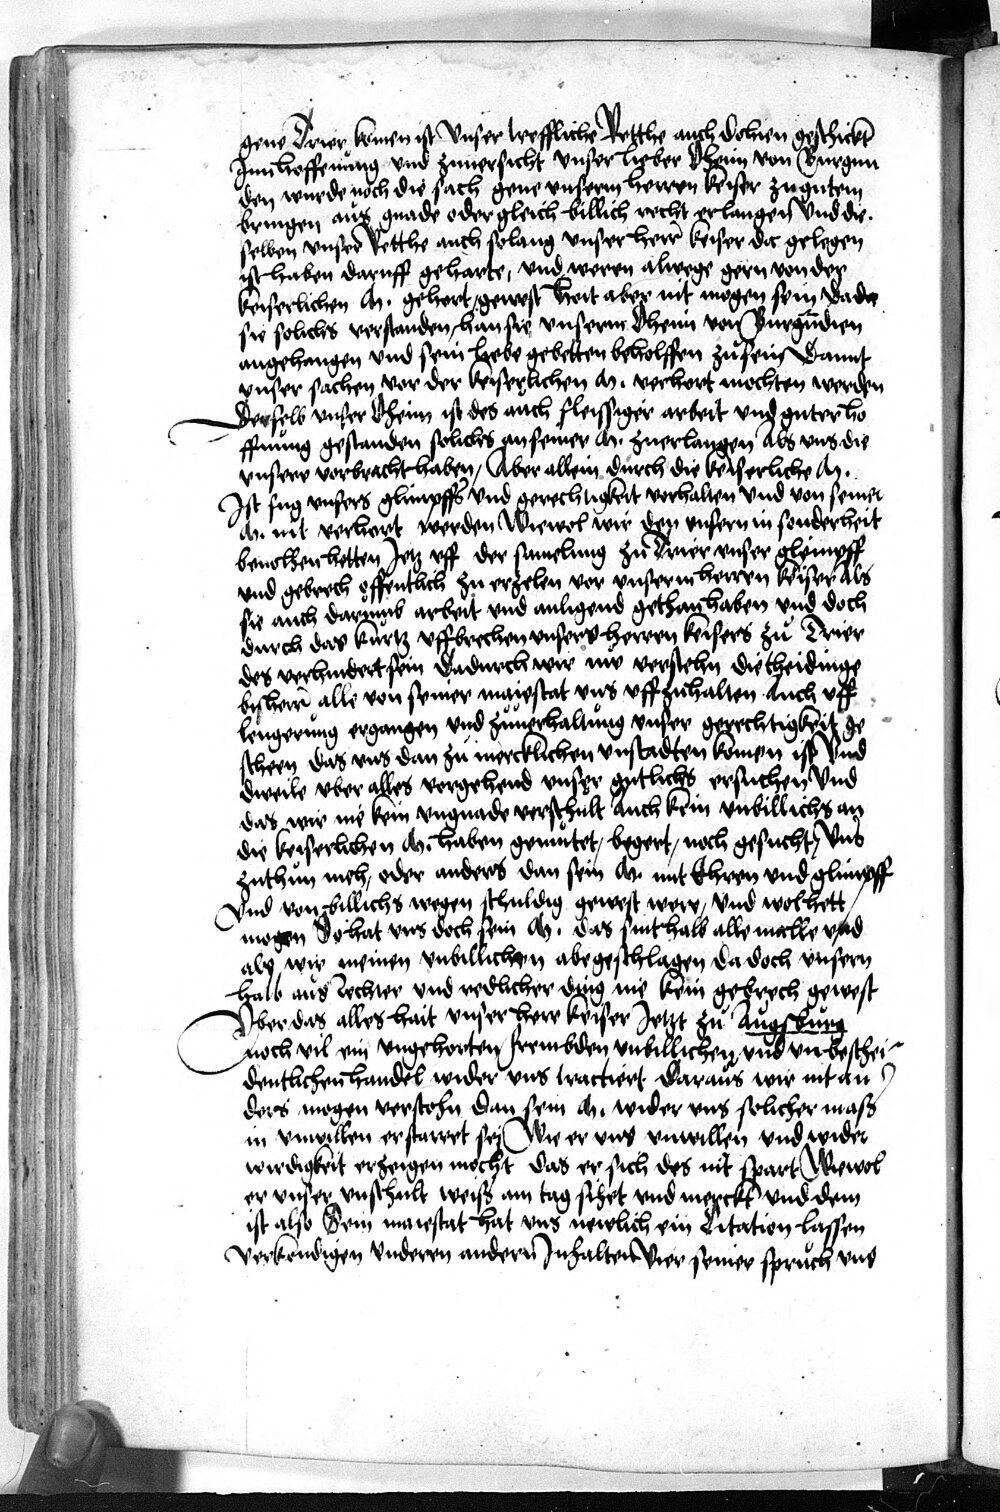 gene Trier komen ist unser treffliche Retthe auch dohien geschickt
Inn hoffenung und zuuersicht unser lieber Oheim von Burgun
den wurde noch die sach gene unserm herren keiser zu gutem
bringen auß gnade oder gleich billich recht erlangen Und die.
selben unser Retthe auch solang unser herr keiser da gelegen
ist haben daruff geharte, und weren alwege gern von der
keiserlichen M. gehort gewest Hait aber nit mogen sein Da da
sie solichs verstanden han sie unserm Oheim von Burgundien
angehangen und sein liebe gebetten beholffen zu sein Damit
unser sachen vor der keiserlichen M. verhort mochten werden
Derselb unser Oheim ist des auch fleissiger arbeit und guter ho
ffnung gestanden solichs an seiner M. zuerlangen Als uns die
unsere vorbracht haben, Aber allein durch die keiserliche M.
Ist fug unsers glimpffs und gerechtigkeit verhalten und von seiner
M. nit verhort werden Wiewol wir den unsern in sonderheit
beuolhen hetten Jetz uff der samelung zu Trier unser glimpff
und gebrech offentlich zu erzelen vor unserm herren keiser als
sie auch darumb arbeit und anligend gethan haben und doch
durch das kurtz uffbrechen unsers herren keisers zu Trier
des verhindert sein Dadurch wir nu verstehn die theidinge
bisherr alle von seiner maiestat uns uffzuhalten Auch uff
lengerung ergangen und zuuerhaltung unser gerechtigkeit ge
scheen das uns dan zu mercklichen unstadten komen ist Und
dweile uber alles vorgehend unser gutlichs ersuchen Und
das wir nie kein ungnade verschult Auch kein unbillichs an
die keiserlichen M. haben gemutet, begert, noch gesucht, Uns
zuthun meh, oder anders dan sein M. mit Ehren und glimpff
Und von billichs wegen schuldig gewest were, und wol hett
mogen So hat uns doch sein M. das sint halb alle malle und
als wir meinen unbillichen abegeschlagen da doch unsern
halb auß rechter und redlicher ding nie kein gebrech gewest
Uber das alles hait unser herr keiser Jetzt zu Augspurg
noch vil ein ungehorten frembden unbillichen und un beschei
dentlichen handel wider uns tractiert Daraus wir nit an
ders mogen verstehn Dan sein M. wider uns solicher maß
in unwillen erstarret sei Wie er uns unwillen und wider
wirdigkeit erzeigen mocht das er sich des nit spart Wiewol
er unser unschult weiß am tag sihet und merckt und dem
ist also Sein maiestat hat uns newlich ein Citation lassen
verkondigen under andern Inhalten Vier seiner spruch uns